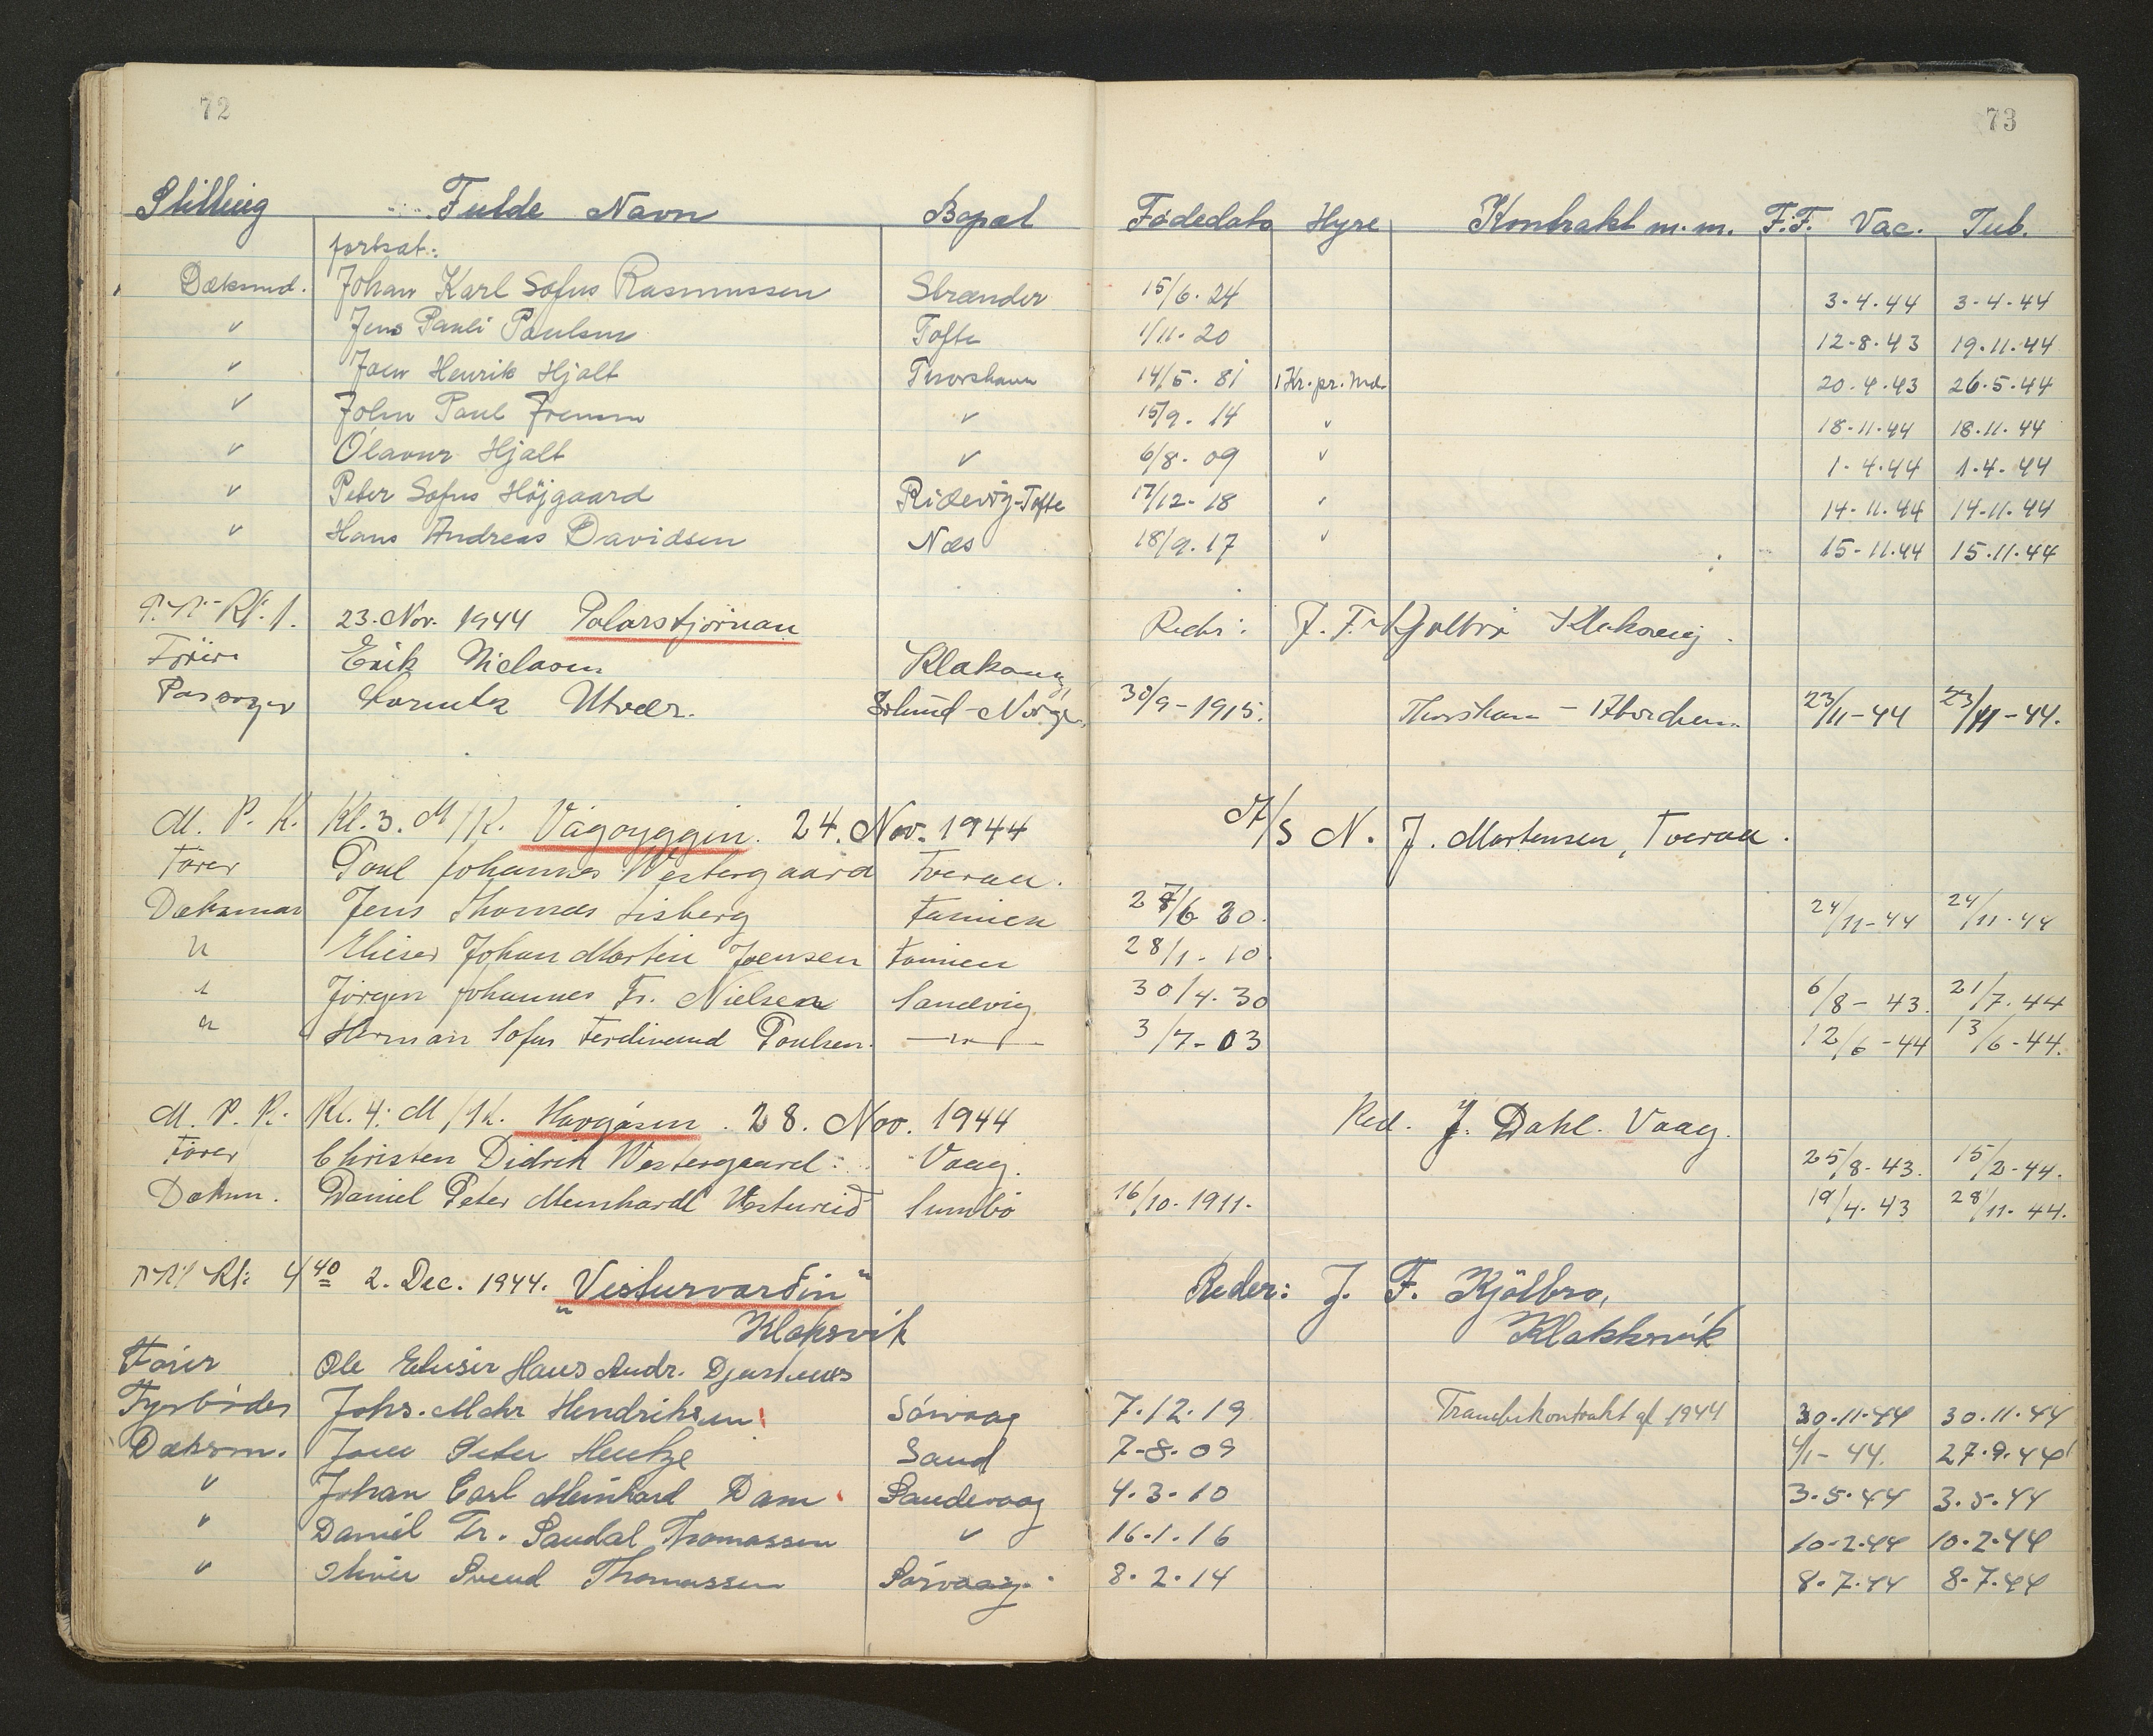 72 73
Stilling Fulde Navn Bopæl Fødedato Hyre Kontrakt m.m. F.F. Vac. Tub.
fortsat:
Dæksmd. Johan Karl Sofus Rasmussen Strænder 15/6. 24 3-4.44 3-4-44
" Jens Pauli Poulsen Tofte 1/11. 20 12-8.43 19.11.44
" Joen Henrik Hjalt Thorshavn 14/5. 81 1 Kr. pr. Md. 20.4.43 26.5.44
" John Paul " 15/9. 14 " 18-11.44 18.11.44
" Ólavur Hjalt " 6/8. 09 " 1-4.44 1.4.44
" Peter Sofus Höjgaard Ridevig-Tofte 17/12-18 " 14-11.44 14-11.44
" Hans Andreas Davidsen Næs 18/9.17 " 15-11.44 15.11.44
Kl. 1. 23. Nov. 1944 Polarstjörnan Reder: J. F. Kjølbro Klaksvig.
Förer Erik Niclasen Klaksvig
Passager Utvær. Solund-Norge 30/9-1915. Thorshavn - Aberdeen 23/11-44 23/11-44.
M. P. K. Kl. 3. M/K. Vágoyggin. 24. Nov. 1944 A/S N. J. Mortensen, Tveraa.
Förer Poul Johannes Westergaard Tveraa.
Dæksmar Jens Thomas Lisberg Famien 28/6 20. 24/11-44 24/11-44
" Elieser Johan Martin Joensen Famien 28/1. 10.
" Jörgen Johannes Fr. Nielsen Sandvig 30/4. 30 6/8-43. 21/7.44
" Herman Sofus Ferdinand Poulsen. —"— 3/7-03 12/6-44 13/6-44.
M. P. K. Kl. 4. M/K. Havgásin. 28. Nov. 1944 Red. J. Dahl. Vaag.
Förer Christen Didrik Westergaard. Vaag. 25/8-43. 15/2-44.
Dæksm. Daniel Peter Meinhardt Vestureið Sumbö 16/10.1911. 19/4.43 28/11.44.
Kl: 4 40 2. Dec. 1944. "Vesturvarðin" Reder: J. F. Kjölbro,
Klaksvik Klakksvík
Förer Ole Hans Andr. Djurhuus
Fyrböder Johs. Mohr Hendriksen Sörvaag 7.12.19 Tranebkontrakt af 1944 30.11.44 30.11.44
Dæksm. Joen Peter Hentze Sand 7-8.09 4/1-44. 27.9.44
" Johan Carl Meinhard Dam Sandevaag 4.3.10 3.5.44 3.5.44
" Daniel Fr. Sandal Thomassen " 16.1.16 10-2.44 10.2.44
" Svend Thomassen Sörvaag. 8.2.14 8.7.44 8.7.44